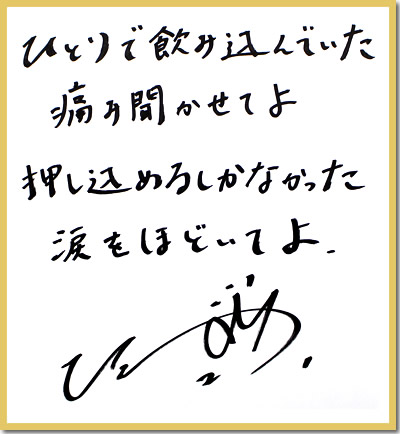 ひとりで飲み込んでいた
痛み聞かせてよ
押し込めるしかなかった
涙をほどいてよ